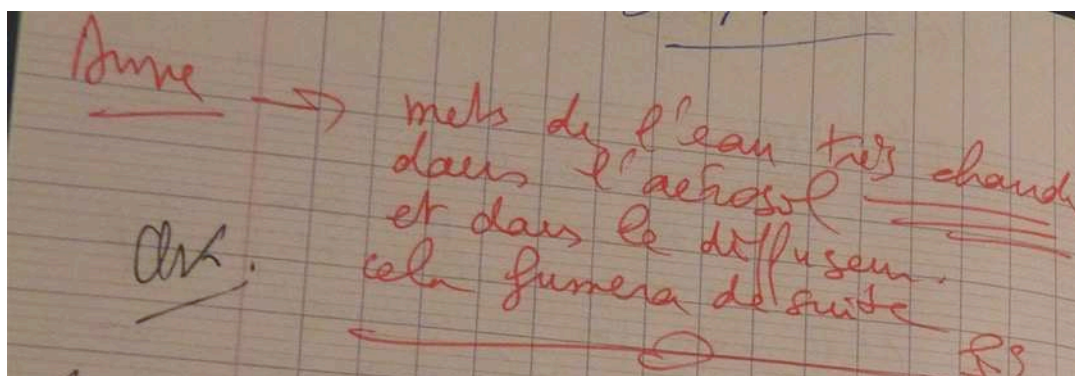 Anne → mets de l'eau très chaude
dans l'aérosol
et dans le diffuseur.
cela fumera de suite